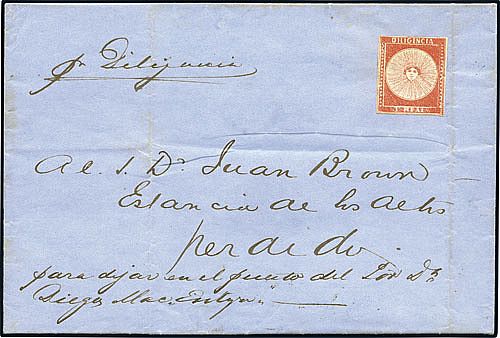 DILIGENCIA
1 REAL.
pr Diligencia
Al S. Dn. Juan Brown
Estancia de los Altos
perdido.
para dejar en el puesto del Sor Dn.
Diego Mac